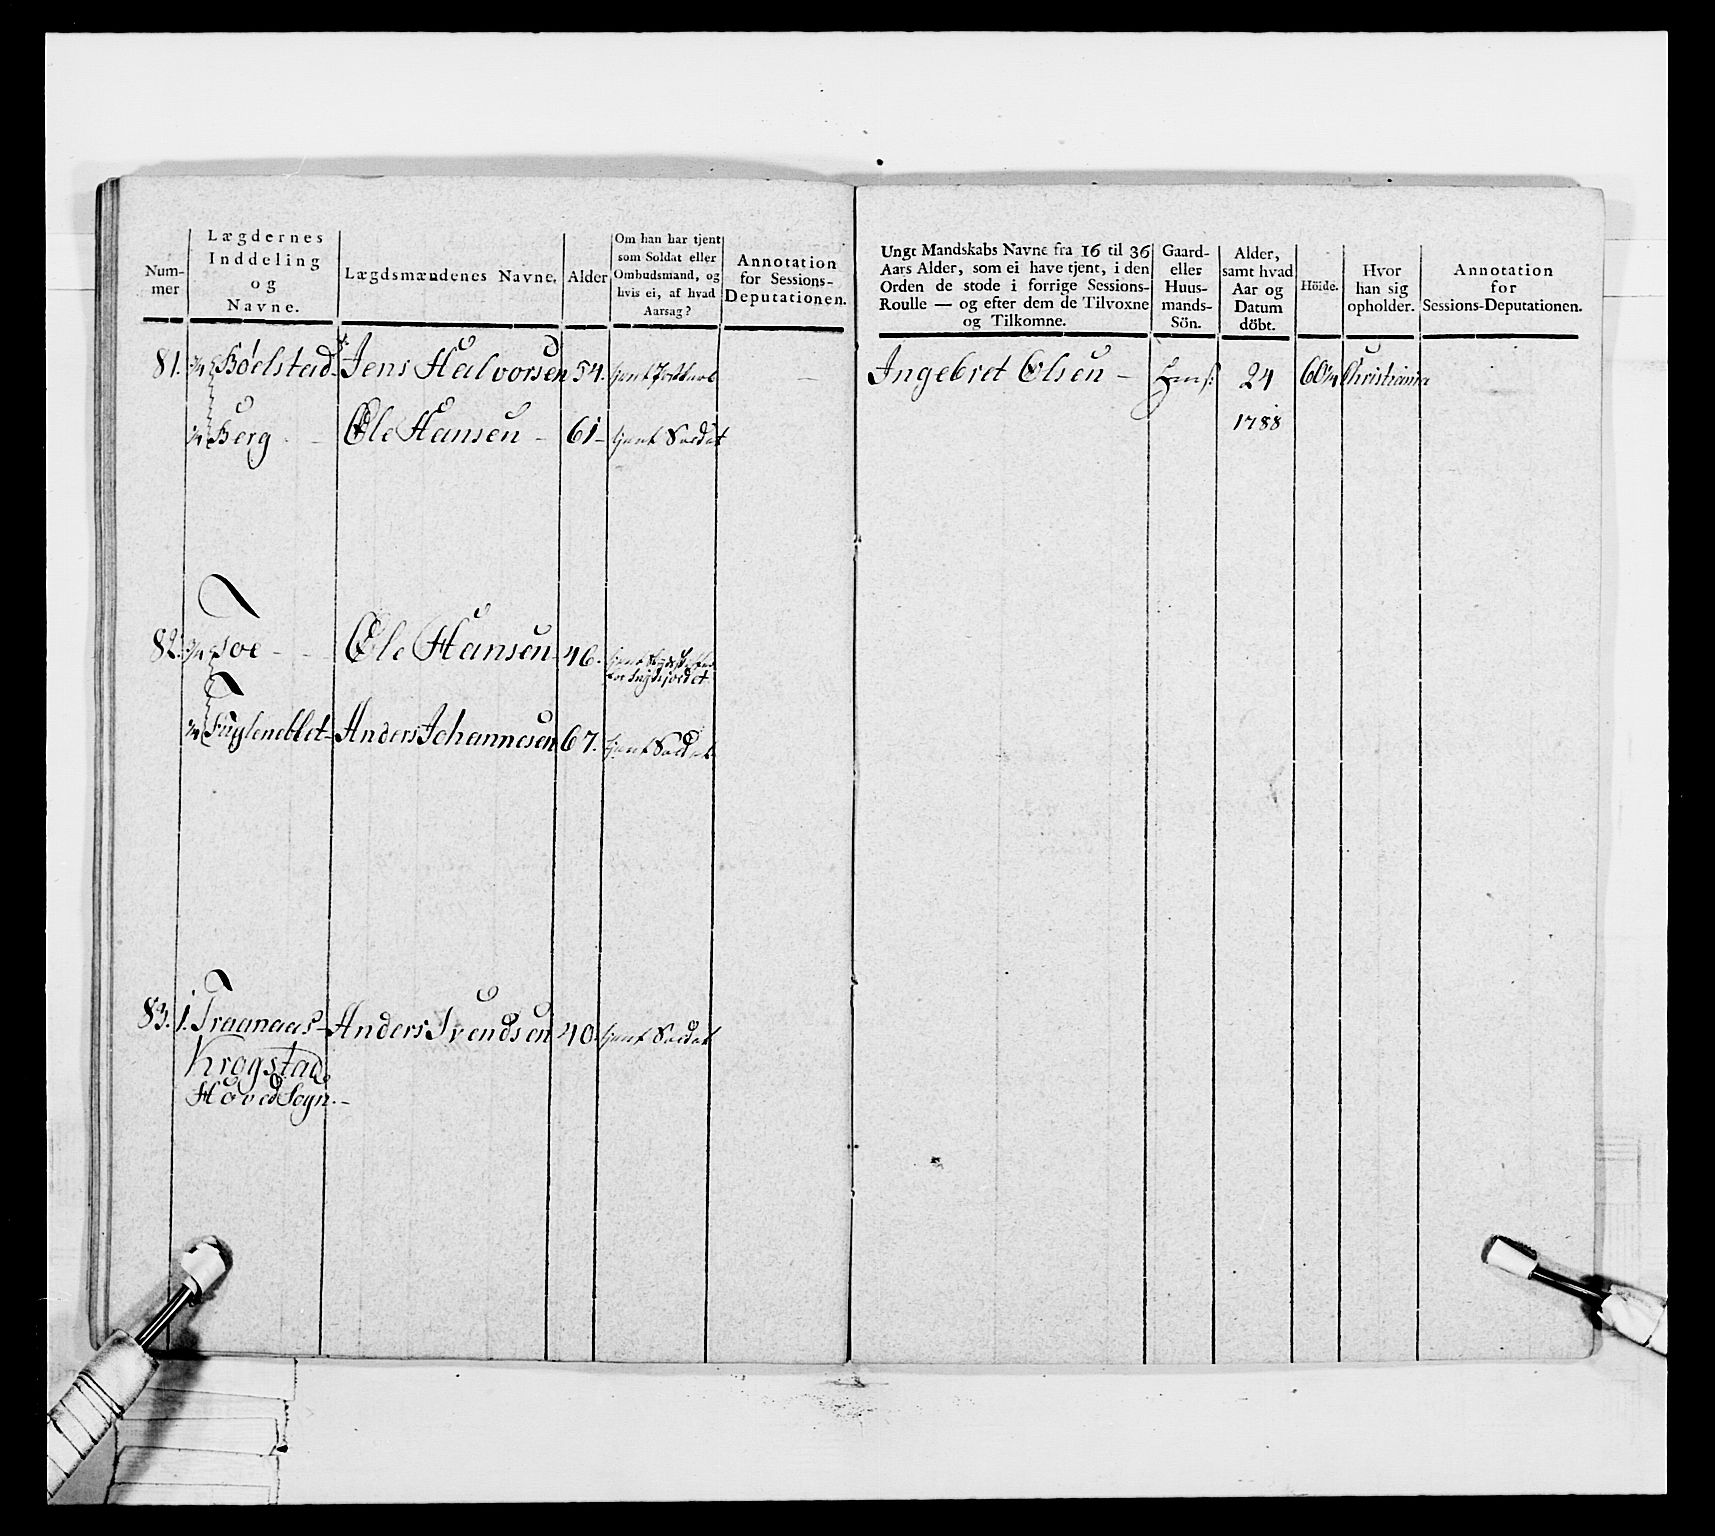 Num-
mer
Lægdernes
Inddeling
og
Navne.
Lægdsmændenes Navne.
Alder
Om han har tjent
som Soldat eller
Ombudsmand, og
hvis ei, af hvad
Aarsag?
Annotation
for Sessions-
Deputationen.
81. Bøelstad Jens Halvorsen 54.
Berg - Ole Hansen - 61 - tjent Soldat
82. Toe - Ole Hansen 46.
Fugleneblet - Anders Johannesen 67. tjent Soldat
83. 1. Traanaas - Anders Svendsen 40. tjent Soldat
Krogstad
Hoved Sogn. -
Ungt Mandskabs Navne fra 16 til 36
Aars Alder, som ei have tjent, i den
Orden de stode i forrige Sessions-
Roulle — og efter dem de Tilvoxne
og Tilkomne.
Gaard-
eller
Huus-
mands-
Sön.
Alder,
samt hvad
Aar og
Datum
döbt.
Höide.
Hvor
han sig
opholder.
Annotation
for
Sessions-Deputationen.
Ingebret Olsen - 24 Christiania
1788